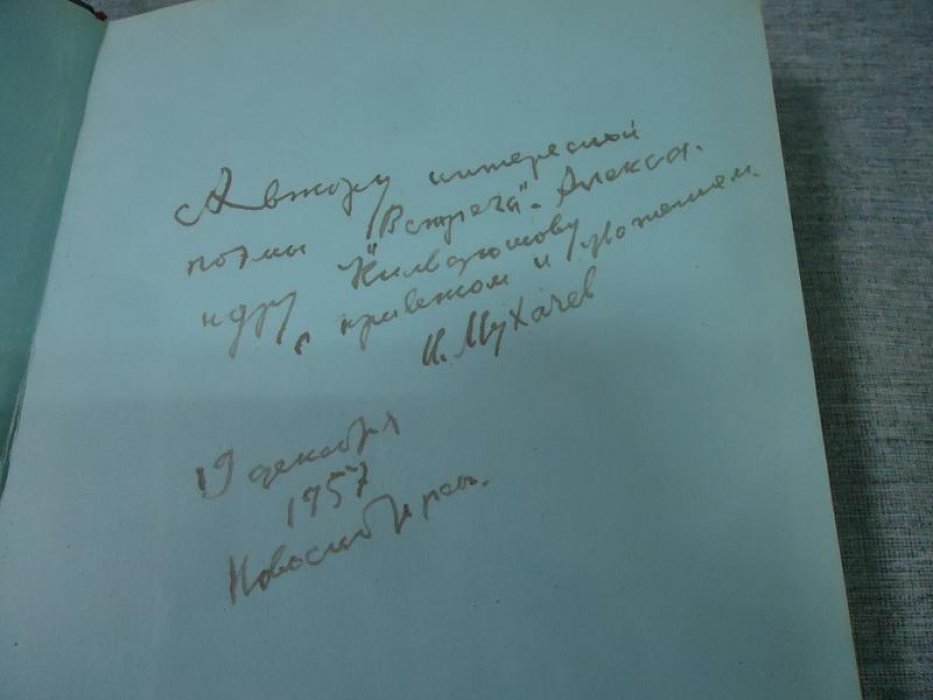 Автору интересной
поэмы "Встреча" - Алекса-
ндру
с приветом и уважением.
И. Мухачев
19 декабря
1957
Новосибирск.